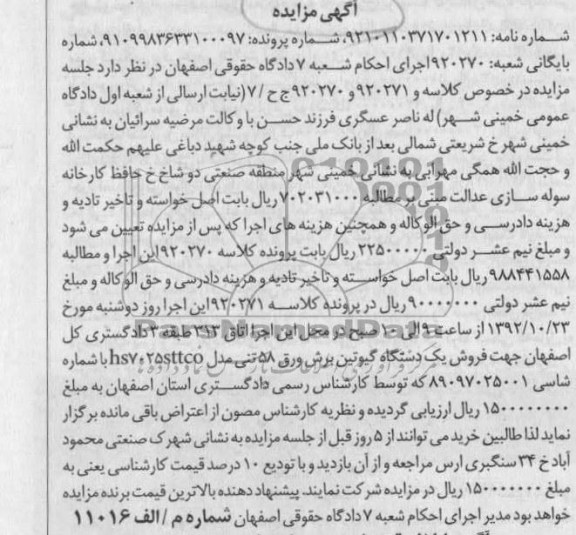 آگهی مزایده
شماره نامه: ۹۲۱۰۱۱۰۳۷۱۷۰۱۲۱۱، شماره پرونده: ۹۱۰۹۹۸۳۶۳۳۱۰۰۰۹۷، شماره
بایگانی شعبه: ۹۲۰۲۷۰ اجرای احکام شعبه ۷ دادگاه حقوقی اصفهان در نظر دارد جلسه
مزایده در خصوص کلاسه و ۹۲۰۲۷۱ و ۹۲۰۲۷۰ ج ح / ۷ (نیابت ارسالی از شعبه اول دادگاه
عمومی خمینی شهر) له ناصر عسگری فرزند حسن با وکالت مرضیه سرائیان به نشانی
خمینی شهر خ شریعتی شمالی بعد از بانک ملی جنب کوچه شهید دباغی علیهم حکمت الله
و حجت الله همگی مهرآبی به نشانی خمینی شهر منطقه صنعتی دو شاخ خ حافظ کارخانه
سوله سازی عدالت مبنی بر مطالبه ۷۰۲۰۳۱۰۰۰ ریال بابت اصل خواسته و تاخیر تادیه و
هزینه دادرسی و حق الوکاله و همچنین هزینه های اجرا که پس از مزایده تعیین می شود
و مبلغ نیم عشر دولتی ۲۲۵۰۰۰۰۰ ریال بابت پرونده کلاسه ۹۲۰۲۷۰ این اجرا و مطالبه
۹۸۸۴۴۱۵۵۸ ریال بابت اصل خواسته و تاخیر تادیه و هزینه دادرسی و حق الوکاله و مبلغ
نیم عشر دولتی ۹۰۰۰۰۰۰۰ ریال در پرونده کلاسه ۹۲۰۲۷۱ این اجرا روز دوشنبه مورخ
۱۳۹۲/۱۰/۲۳ از ساعت ۹ الی ۱۰ صبح در محل این اجرا اتاق ۳۱۳ طبقه ۳ دادگستری کل
اصفهان جهت فروش یک دستگاه گیوتین برش ورق ۵۸ تنی مدل hs۷۰۲۵sttco با شماره
شاسی ۸۹۰۹۷۰۲۵۰۰۱ که توسط کارشناس رسمی دادگستری استان اصفهان به مبلغ
۱۵۰۰۰۰۰۰۰۰ ریال ارزیابی گردیده و نظریه کارشناس مصون از اعتراض باقی مانده برگزار
نماید لذا طالبین خرید می توانند از ۵ روز قبل از جلسه مزایده به نشانی شهرک صنعتی محمود
آباد خ ۳۴ سنگبری ارس مراجعه و از آن بازدید و با تودیع ۱۰ درصد قیمت کارشناسی یعنی به
مبلغ ۱۵۰۰۰۰۰۰۰ ریال در مزایده شرکت نمایند. پیشنهاد دهنده بالاترین قیمت برنده مزایده
خواهد بود مدیر اجرای احکام شعبه ۷ دادگاه حقوقی اصفهان شماره م / الف ۱۱۰۱۶
ParsNamadData